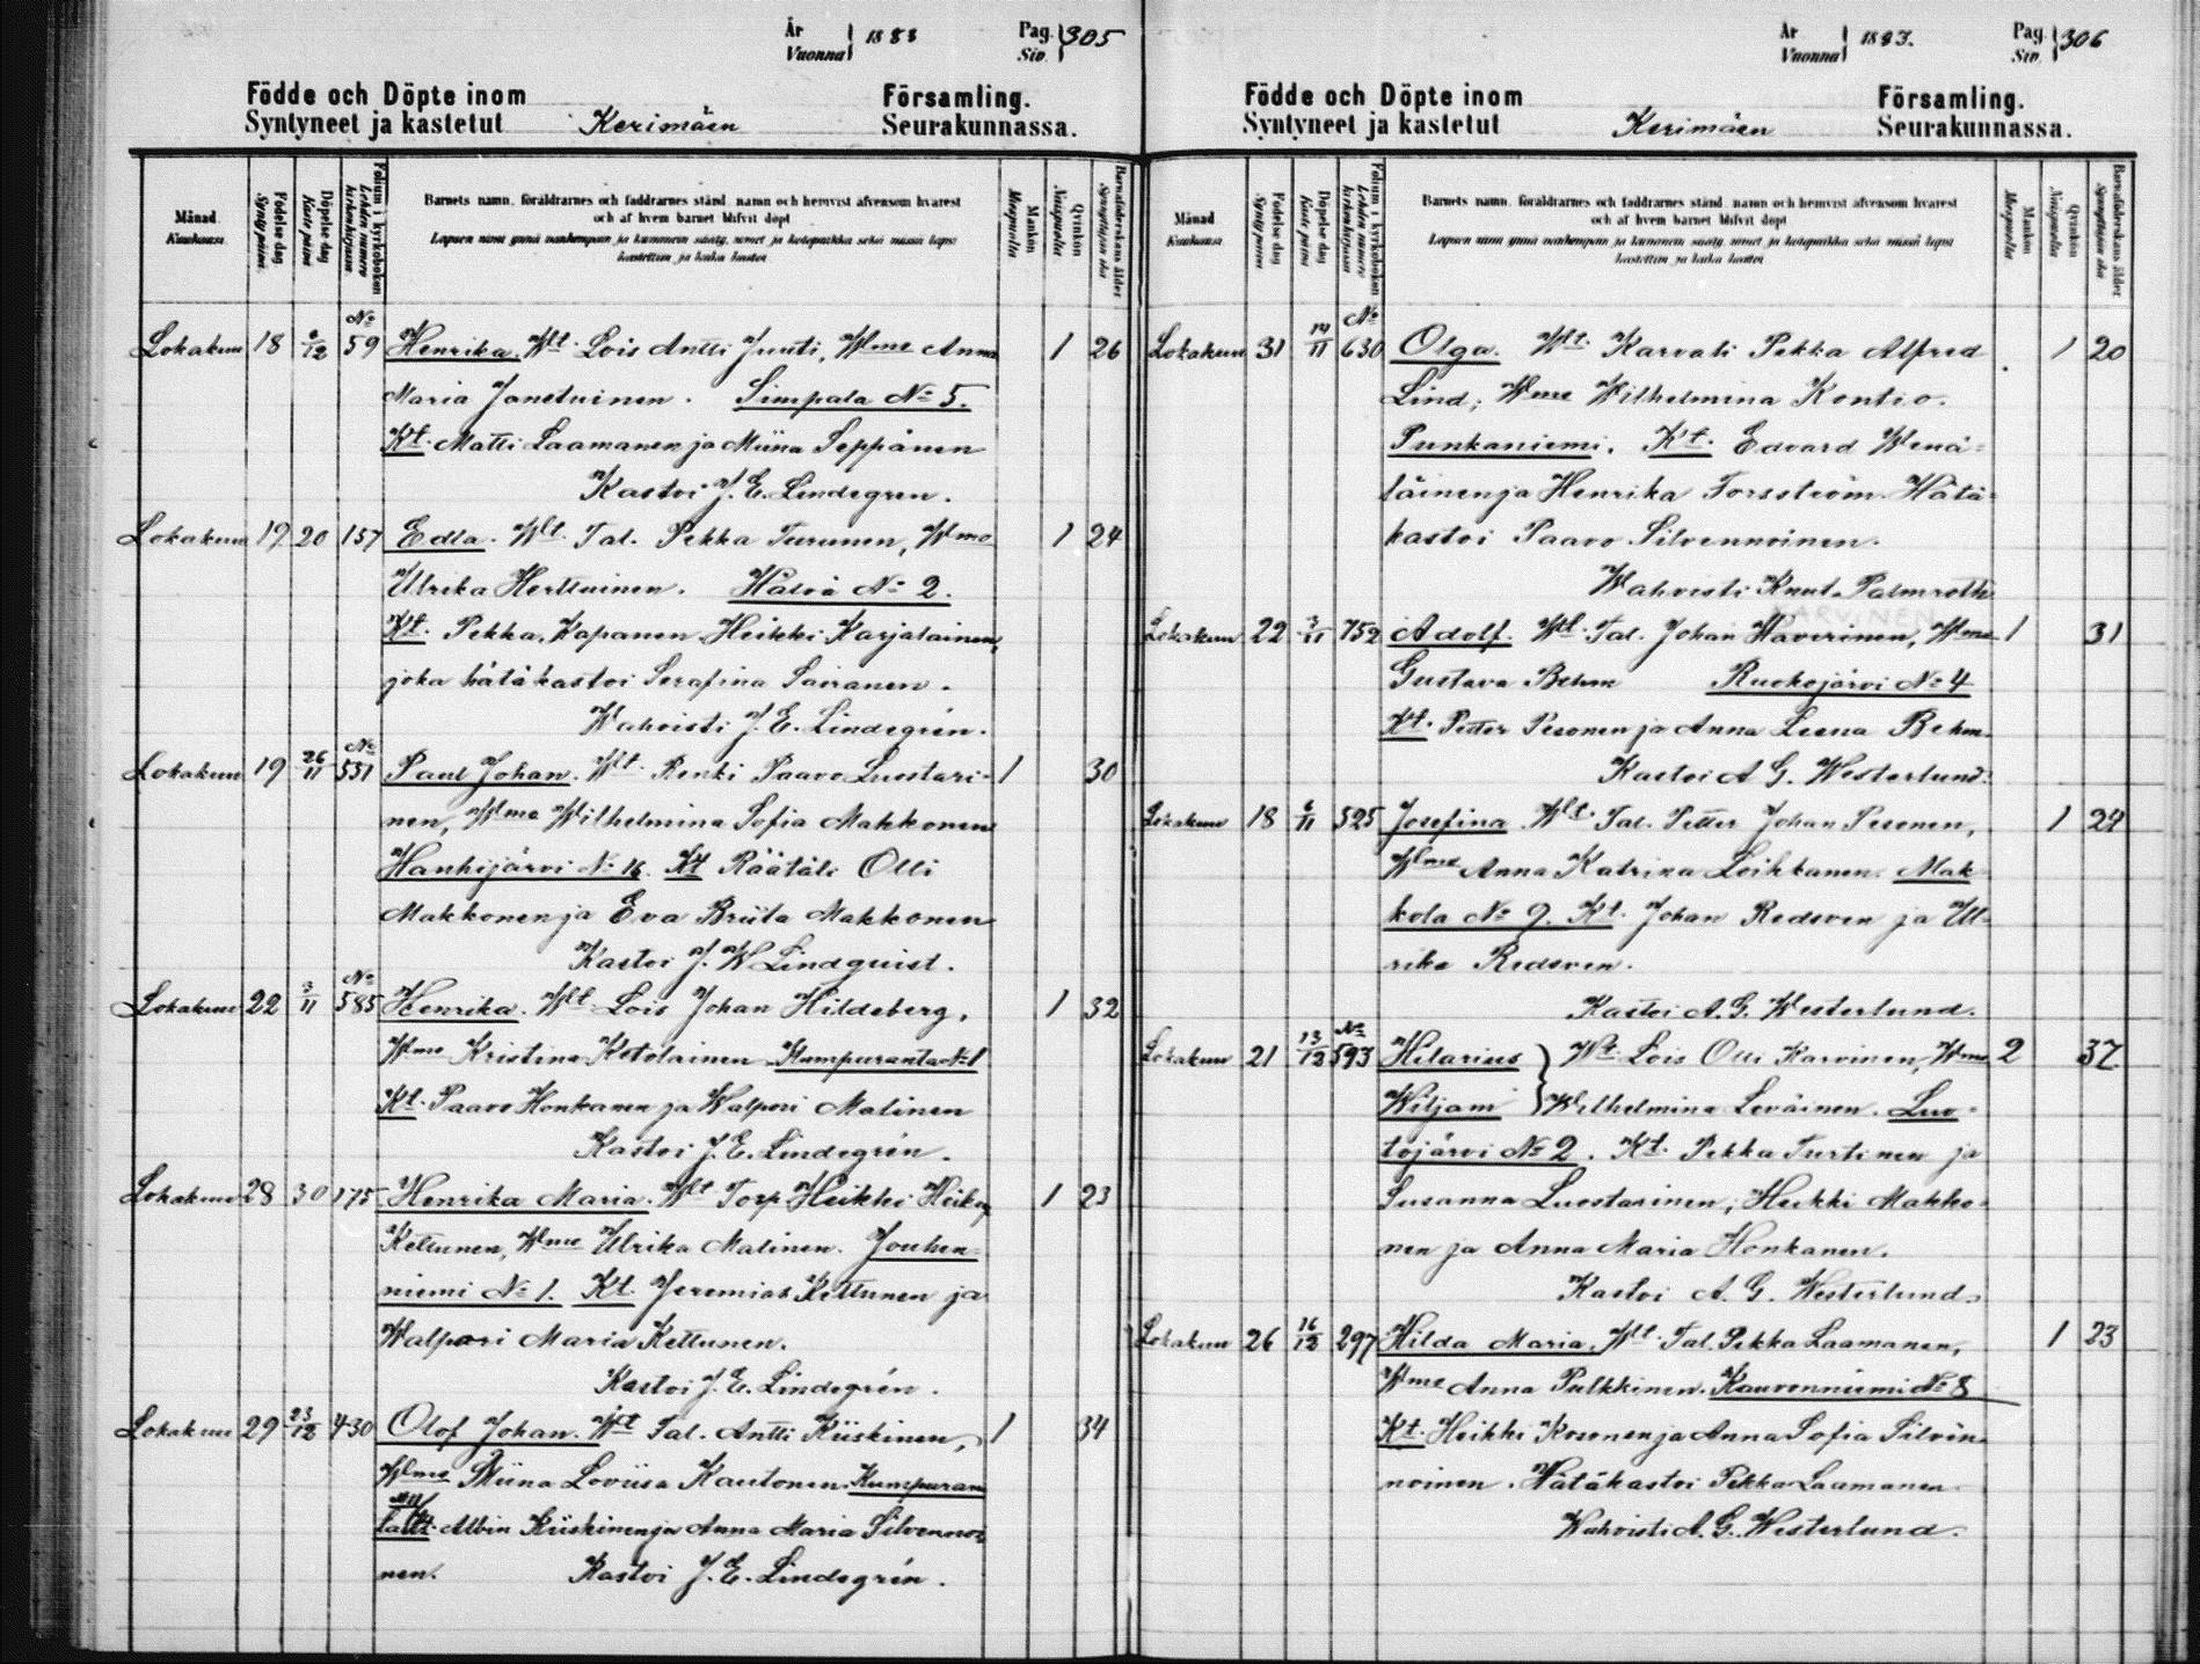 År
Vuonna 1883 Pag. Siv. 305
Födde och Döpte inom Församling.
Syntyneet ja kastetut Kerimäen Seurakunnassa.
Månad Kuukausi
Födelse dag Syntypäivä
Döpelse dag Kastepäivä
Folium i kyrkoboken Lehden numero kirkonkirjassa
Barnets namn, föräldrarnes och faddrarnes stånd, namn och hemvist äfvensom hvarest
och af hvem barnet blifvit döpt
Lapsen nimi ynnä vanhempain ja kummein sääty, nimet ja kotopaikka sekä missä lapsi
kastettiin ja kuka kastoi
Mankön Miespuolta
Qvinkön Naispuolta
Barnaföderskans ålder Synnyttäjän ikä
Lokakuu 18 6/12 No 59 Henrika. Wht. Lois Antti Juuti, Wme Anna 1 26
Maria Janetuinen. Simpala No 5.
Kt. Matti Laamanen ja Miina Seppänen
Kastoi J. E. Lindegren.
Lokakuu 19 20 157 Edla. Wht. Tal. Pekka Turunen, Wmo 1 24
Ulrika Herttuinen. Hälvä No 2.
Kt. Pekka Kapanen Heikki Karjalainen,
joka hätäkastoi Serafina Sairanen.
Wahvisti J. E. Lindegrén.
Lokakuu 19 26/11 No 551 Paul Johan. Wht. Renki Paavo Luostari- 1 30
nen, Wme Wilhelmina Sofia Makkonen
Hanhijärvi No 16. Kt Räätäli Olli
Makkonen ja Eva Briita Makkonen
Kastoi J. W Lindquist.
Lokakuu 22 3/11 No 585 Henrika. Wht Lois Johan Hildeberg, 1 32
Wme Kristina Ketolainen Kumpuranta No 1
Kt. Paavo Honkanen ja Walpori Malinen
Kastoi J. E. Lindegrén.
Lokakuu 28 30 175 Henrika Maria. Wht Torp Heikki Heikinp 1 23
Kettunen, Wme Ulrika Malinen. Jouhen-
niemi No 1. Kt. Jeremias Kettunen ja
Walpori Maria Kettunen.
Kastoi J. E. Lindegrén.
Lokakuu 29 23/12 430 Olof Johan. Wht Tal. Antti Kiiskinen, 1 34
Wme Miina Loviisa Kautonen. Kumpuran
Kt. Albin Kiiskinen ja Anna Maria Silvennoi
nen. Kastoi J. E. Lindegrén.
År
Vuonna 1883. Pag. Siv. 306
Födde och Döpte inom Församling.
Syntyneet ja kastetut Kerimäen Seurakunnassa.
Månad Kuukausi
Födelse dag Syntypäivä
Döpelse dag Kastepäivä
Folium i kyrkoboken Lehden numero kirkonkirjassa
Barnets namn, föräldrarnes och faddrarnes stånd, namn och hemvist äfvensom hvarest
och af hvem barnet blifvit döpt
Lapsen nimi ynnä vanhempain ja kummein sääty, nimet ja kotopaikka sekä missä lapsi
kastettiin ja kuka kastoi
Mankön Miespuolta
Qvinkön Naispuolta
Barnaföderskans ålder Synnyttäjän ikä
Lokakuu 31 14/11 No 630 Olga. Wht. Karvati Pekka Alfred 1 20
Lind; Wme Wilhelmina Kontio.
Punkaniemi. Kt. Edvard Wenä-
läinen ja Henrika Forsström. Hätä-
kastoi Paavo Silvennoinen.
Wahvisti Knut Palmroth
KARVINEN
Lokakuu 22 3/11 752 Adolf. Wht. Tal. Johan Haverinen, Wme 1 31
Gustava Behm Ruokojärvi No 4
Kt. Petter Pesonen ja Anna Leena Behm
Kastoi A G. Westerlund.
Lokakuu 18 6/11 525 Josefina Wht. Tal. Petter Johan Pesonen, 1 24
Wme Anna Katrina Loikkanen. Mak
kola No 9. Kt. Johan Redsven ja Ul-
rika Redsven.
Kastoi A. G. Westerlund.
Lokakuu 21 13/12 No 593 Hilarius Wt. Lois Olli Karvinen, Wme 2 37
Wiljam Wilhelmina Leväinen. Luo-
tojärvi No 2. Kt. Pekka Turtinen ja
Susanna Luostarinen; Heikki Makko-
nen ja Anna Maria Honkanen.
Kastoi A. G. Westerlund.
Lokakuu 26 16/12 297 Hilda Maria. Wht. Tal. Pekka Laamanen, 1 23
Wme Anna Pulkkinen. Kauvonniemi No 8
Kt. Heikki Kosonen ja Anna Sofia Silven-
noinen. Hätäkastoi Pekka Laamanen
Wahvisti A. G. Westerlund.